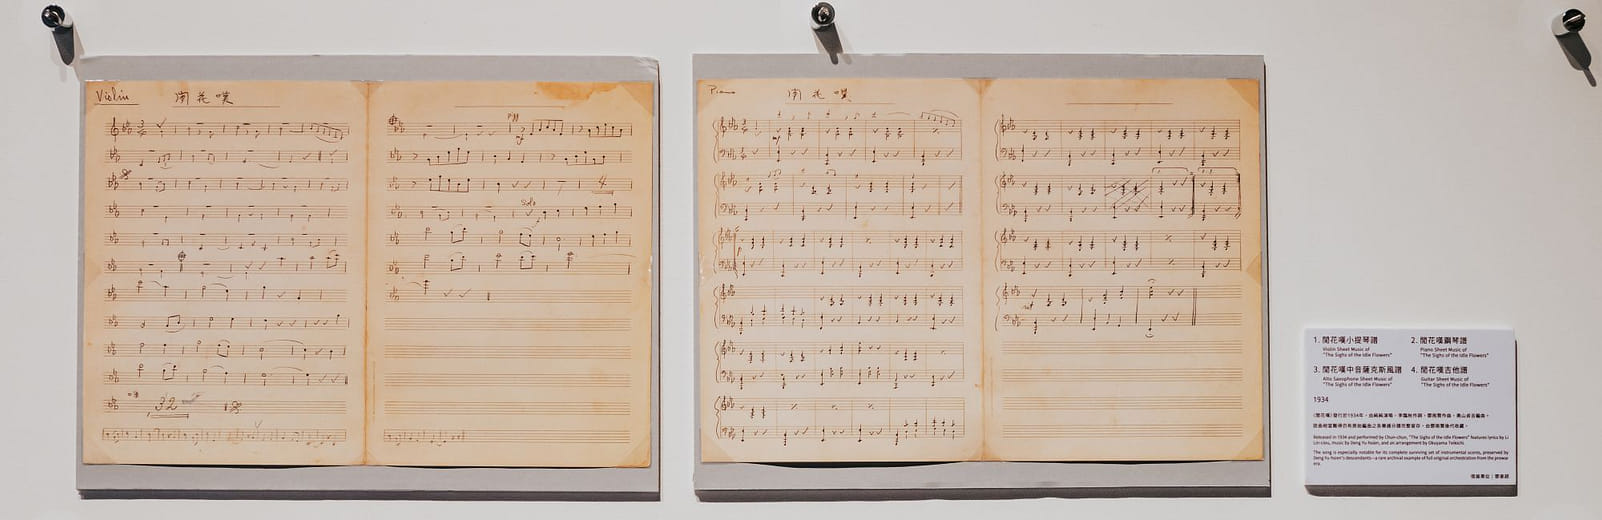 Violin
閒花嘆
mf
4
Solo
32
Piano
閒花嘆
mf
1. 閒花嘆小提琴譜
Violin Sheet Music of
"The Sighs of the Idle Flowers"
2. 閒花嘆鋼琴譜
Piano Sheet Music of
"The Sighs of the Idle Flowers"
3. 閒花嘆中音薩克斯風譜
Alto Saxophone Sheet Music of
"The Sighs of the Idle Flowers"
4. 閒花嘆吉他譜
Guitar Sheet Music of
"The Sighs of the Idle Flowers"
1934
《閒花嘆》發行於1934年，由純純演唱，李臨秋作詞、鄧雨賢作曲、奧山貞吉編曲。
Released in 1934 and performed by Chun-chun, "The Sighs of the Idle Flowers" features lyrics by Li
Lin-ciou, music by Deng Yu-hsien, and an arrangement by Okuyama Teikichi.
The song is especially notable for its complete surviving set of instrumental scores, preserved by
Deng Yu-hsien's descendants—a rare archival example of full original orchestration from the prewar
era.